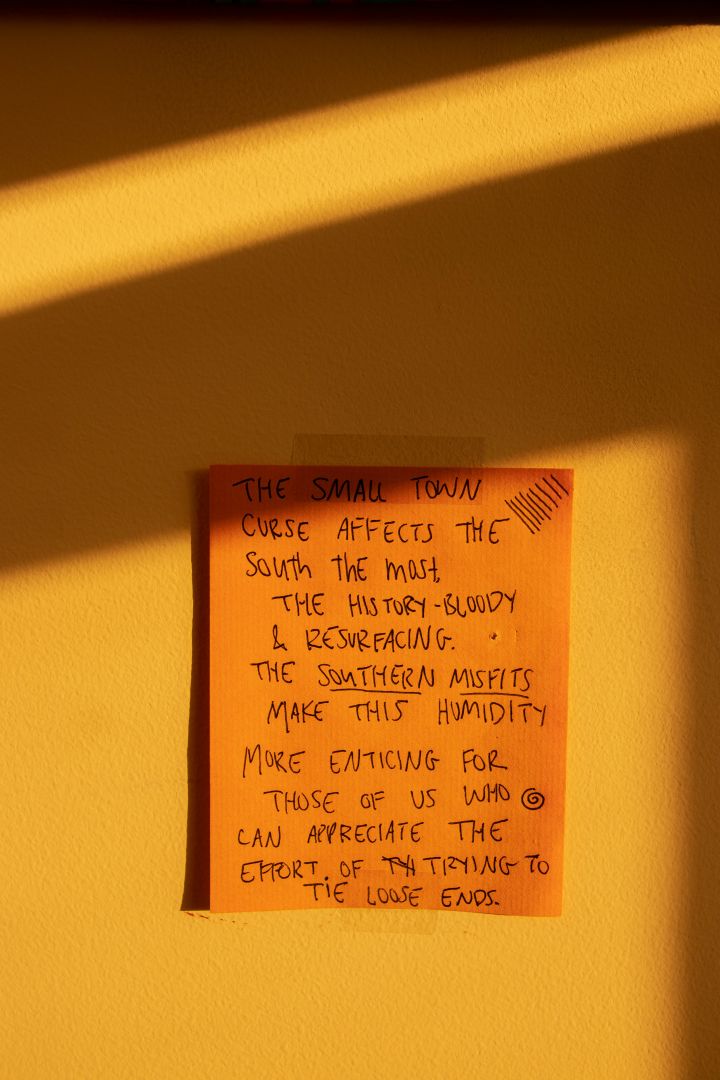 THE SMALL TOWN
CURSE AFFECTS THE
South the most,
THE HISTORY-BLOODY
& RESURFACING.
THE SOUTHERN MISFITS
MAKE THIS HUMIDITY
MORE ENTICING FOR
THOSE OF US WHO
CAN APPRECIATE THE
EFFORT. OF TH TRYING TO
TIE LOOSE ENDS.